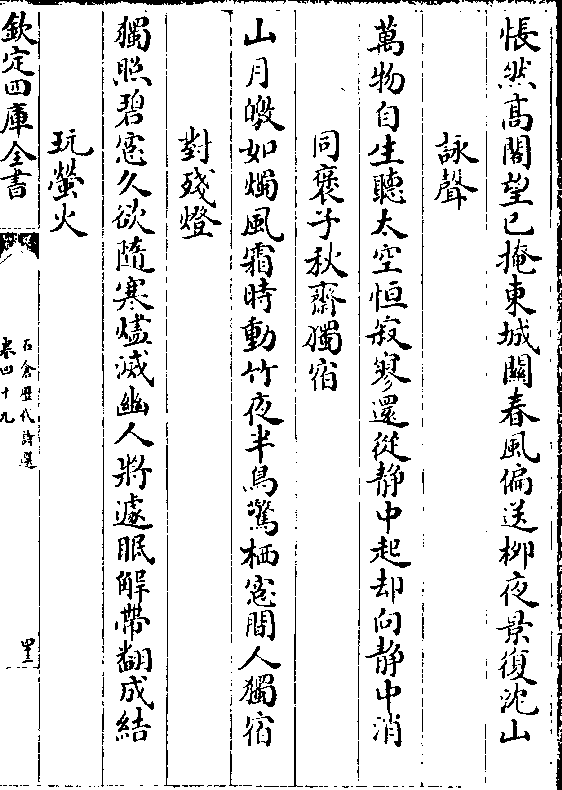 悵然高閣望已掩東城關春風偏送栁夜景復沈山
詠聲
萬物自生聽太空恒寂寥還從静中起却向静中消
同襃子秋齋獨宿
山月皦如燭風霜時動竹夜半鳥驚栖窓間人獨宿
對殘燈
獨照碧窓久欲隨寒燼滅幽人將遽眠解帶翻成結
玩螢火
欽定四庫全書
石倉歴代詩選
卷四十九